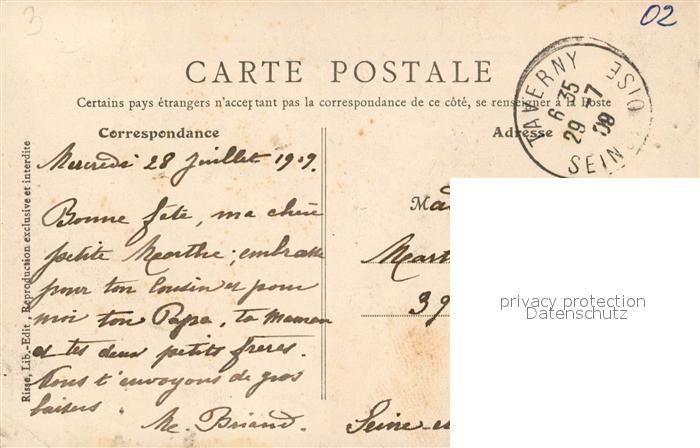 3
02
CARTE POSTALE
Certains pays étrangers n'acceptant pas la correspondance de ce côté, se renseigner à la Poste
TAVERNY
6 35
29 -7
09
SEINE & OISE
Correspondance
Adresse
Mercredi 28 Juillet 1909.
Bonne fête, ma chère
petite Marthe; embrasse
pour ton Cousin et pour
moi ton Papa, ta Maman
et tes deux petits frères.
Nous t'envoyons de gros
baisers.
M. Briand.
Mad
Mart
39
Seine-et
privacy protection
Datenschutz
Risse, Lib.-Edit. Reproduction exclusive et interdite